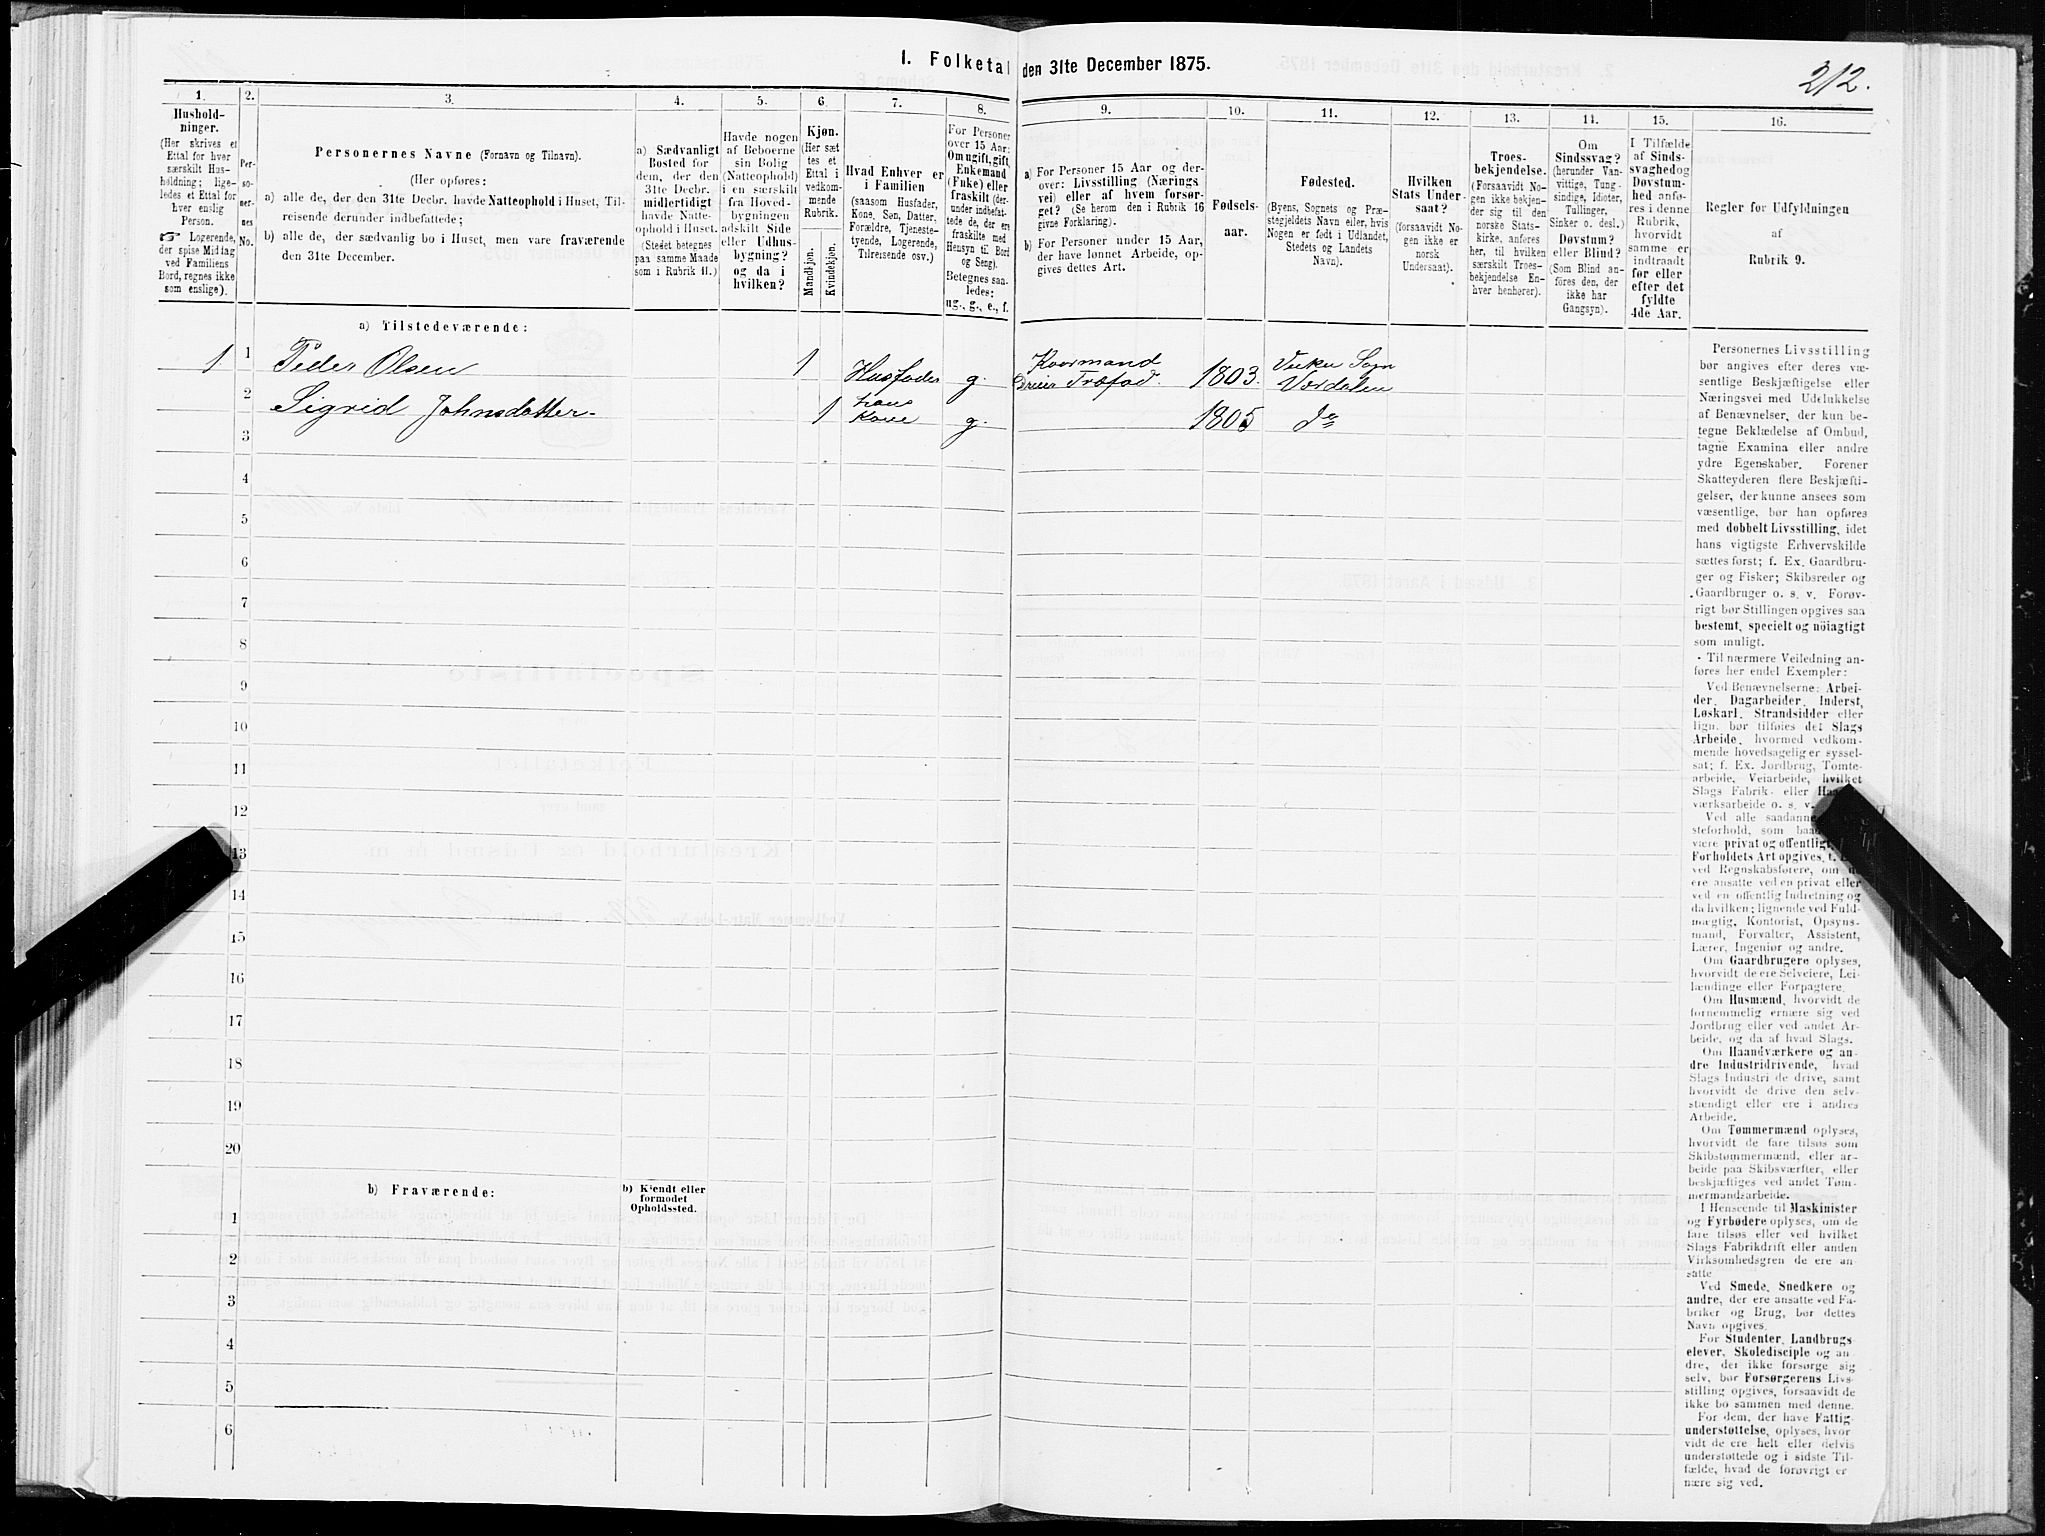 1. Folketal den 31te December 1875.
212.
1.
2.
3.
4.
5.
6.
7.
8.
9.
10.
11.
12.
13.
14.
15.
16.
Hushold-
ninger.
(Her skrives et
Ettal for hver
særskilt Hus-
holdning; lige-
ledes et Ettal for
hver enslig
Person.
☞ Logerende,
der spise Middag
ved Familiens
Bord, regnes ikke
som enslige).
Per-
so-
ner-
nes
No.
Personernes Navne (Fornavn og Tilnavn).
(Her opføres:
a) alle de, der den 31te Decbr. havde Natteophold i Huset, Til-
reisende derunder indbefattede;
b) alle de, der sædvanlig bo i Huset, men vare fraværende
den 31te December.
a) Sædvanligt
Bosted for
dem, der den
31te Decbr.
midlertidigt
havde Natte-
ophold i Huset.
(Stedet betegnes
paa samme Maade
som i Rubrik 11.)
Havde nogen
af Beboerne
sin Bolig
(Natteophold)
i en særskilt
fra Hoved-
bygningen
adskilt Side
eller Udhus-
bygning?
og da i
hvilken?
Kjøn.
(Her sæt
tes et
Ettal i
vedkom-
mende
Rubrik.
Mandkjøn.
Kvindekjøn.
Hvad Enhver er
i Familien
(saasom Husfader,
Kone, Søn, Datter,
Forældre, Tjeneste-
tyende, Logerende,
Tilreisende osv.)
For Personer
over 15 Aar:
Om ugift, gift,
Enkemand
(Enke) eller
fraskilt (der-
under indbefat-
tede de, der ere
fraskilte med
Hensyn til Bord
og Seng).
Betegnes saa-
ledes:
ug., g., e., f.
a) For Personer 15 Aar og der-
over: Livsstilling (Nærings
vei) eller af hvem forsør-
get? (Se herom den i Rubrik 16
givne Forklaring).
b) For Personer under 15 Aar,
der have lønnet Arbeide, op-
gives dettes Art.
Fødsels-
aar.
Fødested.
(Byens, Sognets og Præ-
stegjeldets Navn eller, hvis
Nogen er født i Udlandet,
Stedets og Landets
Navn).
Hvilken
Stats Under-
saat?
(forsaavidt No-
gen ikke er
norsk
Undersaat).
Troes-
bekjendelse.
(Forsaavidt No-
gen ikke bekjen-
der sig til den
norske Stats-
kirke, anføres
her, til hvilken
særskilt Troes-
bekjendelse En-
hver henhører).
Om
Sindssvag?
(herunder Van-
vittige, Tung-
sindige, Idioter,
Tullinger,
Sinker o. desl.)
Døvstum?
eller Blind?
(Som Blind an-
føres den, der
ikke har
Gangsyn).
I Tilfælde
af Sinds-
svaghed og
Døvstum-
hed anfø-
res i denne
Rubrik,
hvorvidt
samme er
indtraadt
før eller
efter det
fyldte
4de Aar.
Regler for Udfyldningen
af
Rubrik 9.
a) Tilstedeværende:
1 1 Peder Olsen 1 Husfader g. Kaarmand 1803. Vuku Sogn
Værdalen
2 Sigrid Johnsdatter 1 hans
Kone g. 1805 do
3
4
5
6
7
8
9
10
11
12
13
14
15
16
17
18
19
20
b) Fraværende:
b) Kjendt eller
formodet
Opholdssted.
1
2
3
4
5
6
Personernes Livsstilling
bør angives efter deres væ-
sentlige Beskjæftigelse eller
Næringsvei med Udelukkelse
af Benævnelser, der kun be-
tegne Beklædelse af Ombud,
tagne Examina eller andre
ydre Egenskaber. Forener
Skatteyderen flere Beskjæfti-
gelser, der kunne ansees som
væsentlige, bør han opføres
med dobbelt Livsstilling, idet
hans vigtigste Erhvervskilde
sættes først; f. Ex. Gaardbru-
ger og Fisker; Skibsreder og
Gaardbruger o. s. v. Forøv-
rigt bør Stillingen opgives saa
bestemt, specielt og nöiagtigt
som muligt.
Til nærmere Veiledning an-
føres her endel Exempler:
Ved Benævnelserne: Arbei-
der, Dagarbeider, Inderst,
Løskarl, Strandsidder eller
lign. bør tilføies det Slags
Arbeide, hvormed vedkom-
mende hovedsagelig er syssel-
sat; f. Ex. Jordbrug, Tomte-
arbeide, Veiarbeide, hvilket
Slags Fabrik- eller
værksarbeide o. s. v.
Ved alle saadanne
steforhold, som
være privat og offentligt,
Forholdets Art opgives,
ved Regnskabsførere, om
ere ansatte ved en privat eller
ved en offentlig Indretning og
da hvilken; lignende ved Fuld-
mægtig, Kontorist, Opsyns-
mand, Forvalter, Assistent,
Lærer, Ingeniør og andre.
Om Gaardbrugere oplyses,
hvorvidt de ere Selveiere, Lei-
lændinge eller Forpagtere.
Om Husmænd, hvorvidt de
fornemmelig ernære sig ved
Jordbrug eller ved andet Ar-
beide, og da af hvad Slags.
Om Haandværkere og an-
dre Industridrivende, hvad
Slags Industri de drive, samt
hvorvidt de drive den selv-
stændigt eller ere i andres
Arbeide.
Om Tømmermænd oplyses,
hvorvidt de fare tilsøs som
Skibstømmermænd, eller ar-
beide paa Skibsværfter, eller
beskjæftiges ved andet Tøm-
mermandsarbeide.
I Henseende til Maskinister
og Fyrbødere oplyses, om de
fare tilsøs eller ved hvilket
Slags Fabrikdrift eller anden
Virksomhedsgren de ere an-
satte
Ved Smede, Snedkere og
andre, der ere ansatte ved Fa-
briker og Brug, bør dettes
Navn opgives.
For Studenter, Landbrugs
elever, Skoledisciple og an-
dre, der ikke forsørge sig
selv, bør Forsørgerens Livs-
stilling opgives, forsaavidt de
ikke bo sammen med denne.
For dem, der have Fattig-
understøttelse, oplyses, hvor
vidt de ere helt eller delvis
understøttede og i sidste Til-
fælde, hvad de forøvrigt er
nære sig ved.